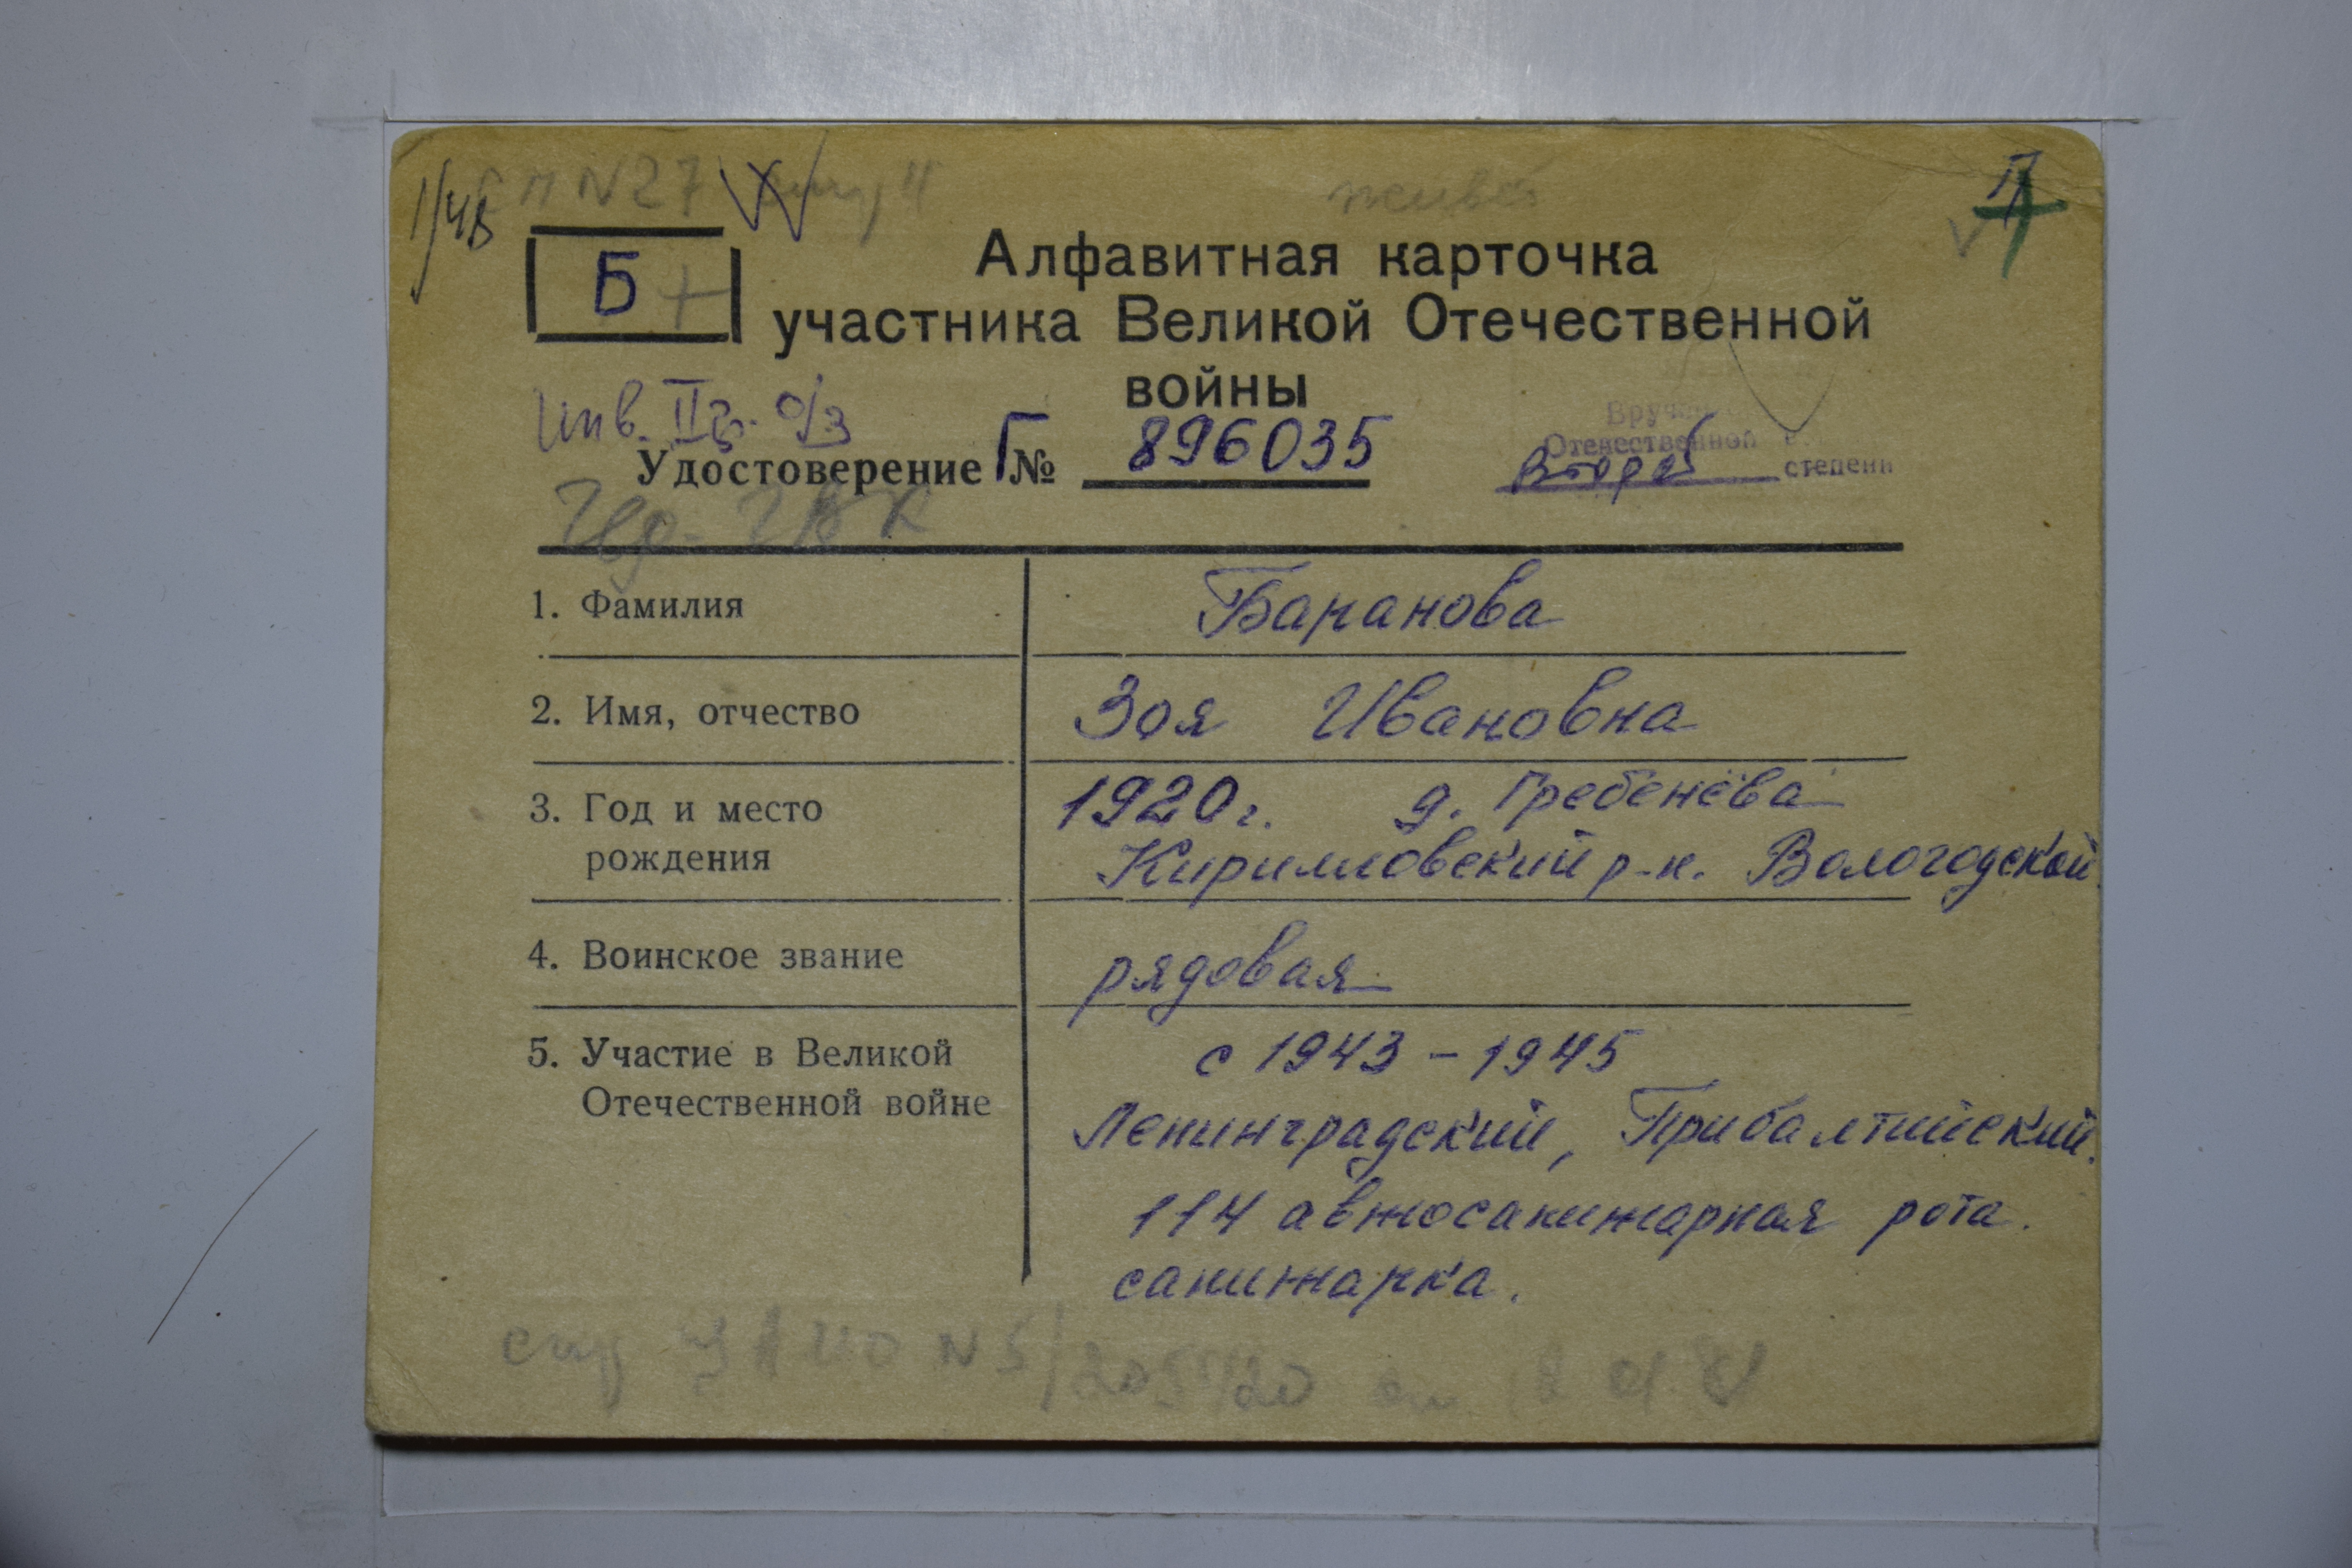 1/48 N 27
Б +
Алфавитная карточка
участника Великой Отечественной
войны
Инв. II гр. о/з
Удостоверение Г № 896035
Отечественной в.
второй степени
1. Фамилия Баранова
2. Имя, отчество Зоя Ивановна
3. Год и место 1920 г. д. Гребенёва
рождения Кирилловский р-н. Вологодской
4. Воинское звание рядовая
5. Участие в Великой с 1943 – 1945
Отечественной войне Ленинградский, Прибалтийский.
114 автосанитарная рота.
санитарка.
ЦАМО N 5/